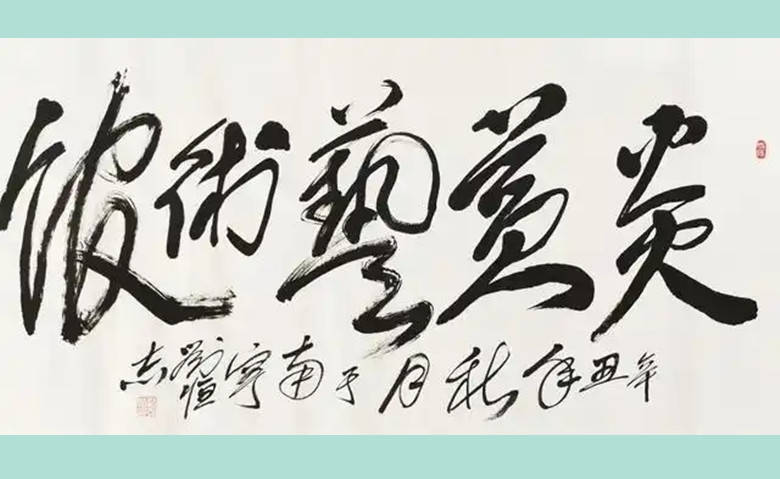 炎黄藝術館
辛丑年秋月于南寧劉恒志